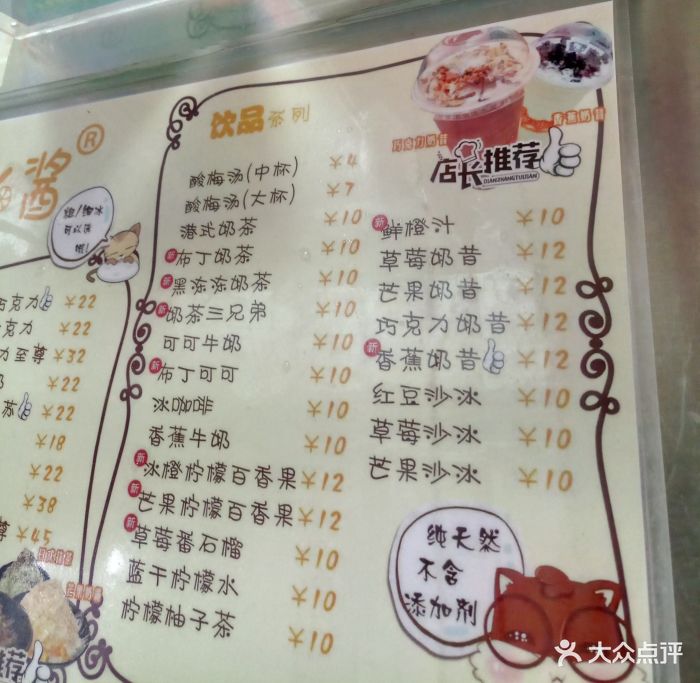 酱®
可以试
哦!
巧克力 ¥22
克力 ¥22
力至尊 ¥32
¥22
¥22
¥18
¥22
¥38
尊 ¥45
荐
饮品系列
酸梅汤(中杯) ¥4
酸梅汤(大杯) ¥7
港式奶茶 ¥10
新 布丁奶茶 ¥10
新 黑冻冻奶茶 ¥10
新 奶茶三兄弟 ¥10
可可牛奶 ¥10
新 布丁可可 ¥10
冰咖啡 ¥10
香蕉牛奶 ¥10
新 冰橙柠檬百香果 ¥12
新 芒果柠檬百香果 ¥12
新 草莓番石榴 ¥10
蓝干柠檬水 ¥10
柠檬柚子茶 ¥10
巧克力奶昔
香蕉奶昔
店长推荐
DIANZHANGTUIJIAN
新 鲜橙汁 ¥10
草莓奶昔 ¥12
芒果奶昔 ¥12
巧克力奶昔 ¥12
新 香蕉奶昔 ¥12
红豆沙冰 ¥10
草莓沙冰 ¥10
芒果沙冰 ¥10
纯天然
不含
添加剂
大众点评